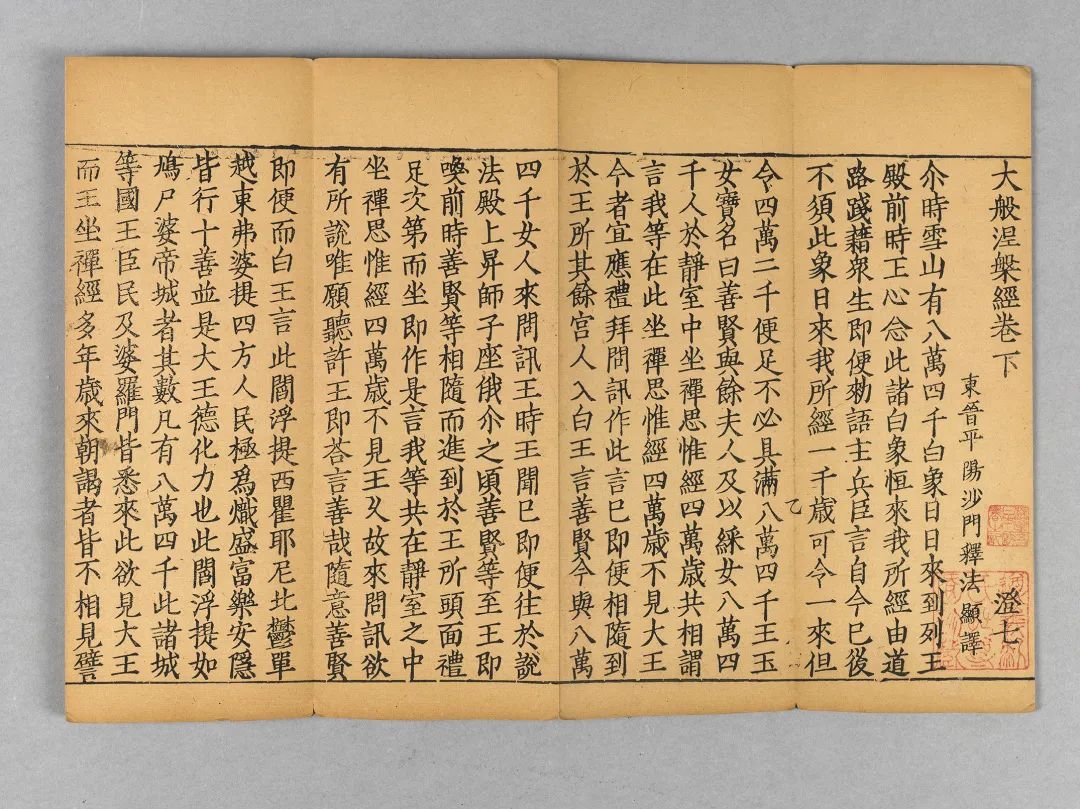 大般涅槃經卷下 澄七
東晉平陽沙門釋法顯譯
尒時雪山有八萬四千白象日日來到列王
殿前時王心念此諸白象恒來我所經由道
路踐藉衆生即便勑語主兵臣言自今已後
不須此象日來我所經一千歲可令一來但
乙
令四萬二千便足不必具滿八萬四千王玉
女寶名曰善賢與餘夫人及以婇女八萬四
千人於靜室中坐禪思惟經四萬歲共相謂
言我等在此坐禪思惟經四萬歲不見大王
今者宜應禮拜問訊作此言已即便相隨到
於王所其餘宮人入白王言善賢今與八萬
四千女人來問訊王時王聞已即便往於說
法殿上昇師子座俄尒之頃善賢等至王即
喚前時善賢等相隨而進到於王所頭面禮
足次第而坐即作是言我等共在靜室之中
坐禪思惟經四萬歲不見王久故來問訊欲
有所説唯願聽許王即荅言善哉隨意善賢
即便而白王言此閻浮提西瞿耶尼北鬱單
越東弗婆提四方人民極爲熾盛富樂安隱
皆行十善並是大王德化力也此閻浮提如
鳩尸婆帝城者其數凡有八萬四千此諸城
等國王臣民及婆羅門皆悉來此欲見大王
而王坐禪經多年歲來朝謁者皆不相見譬